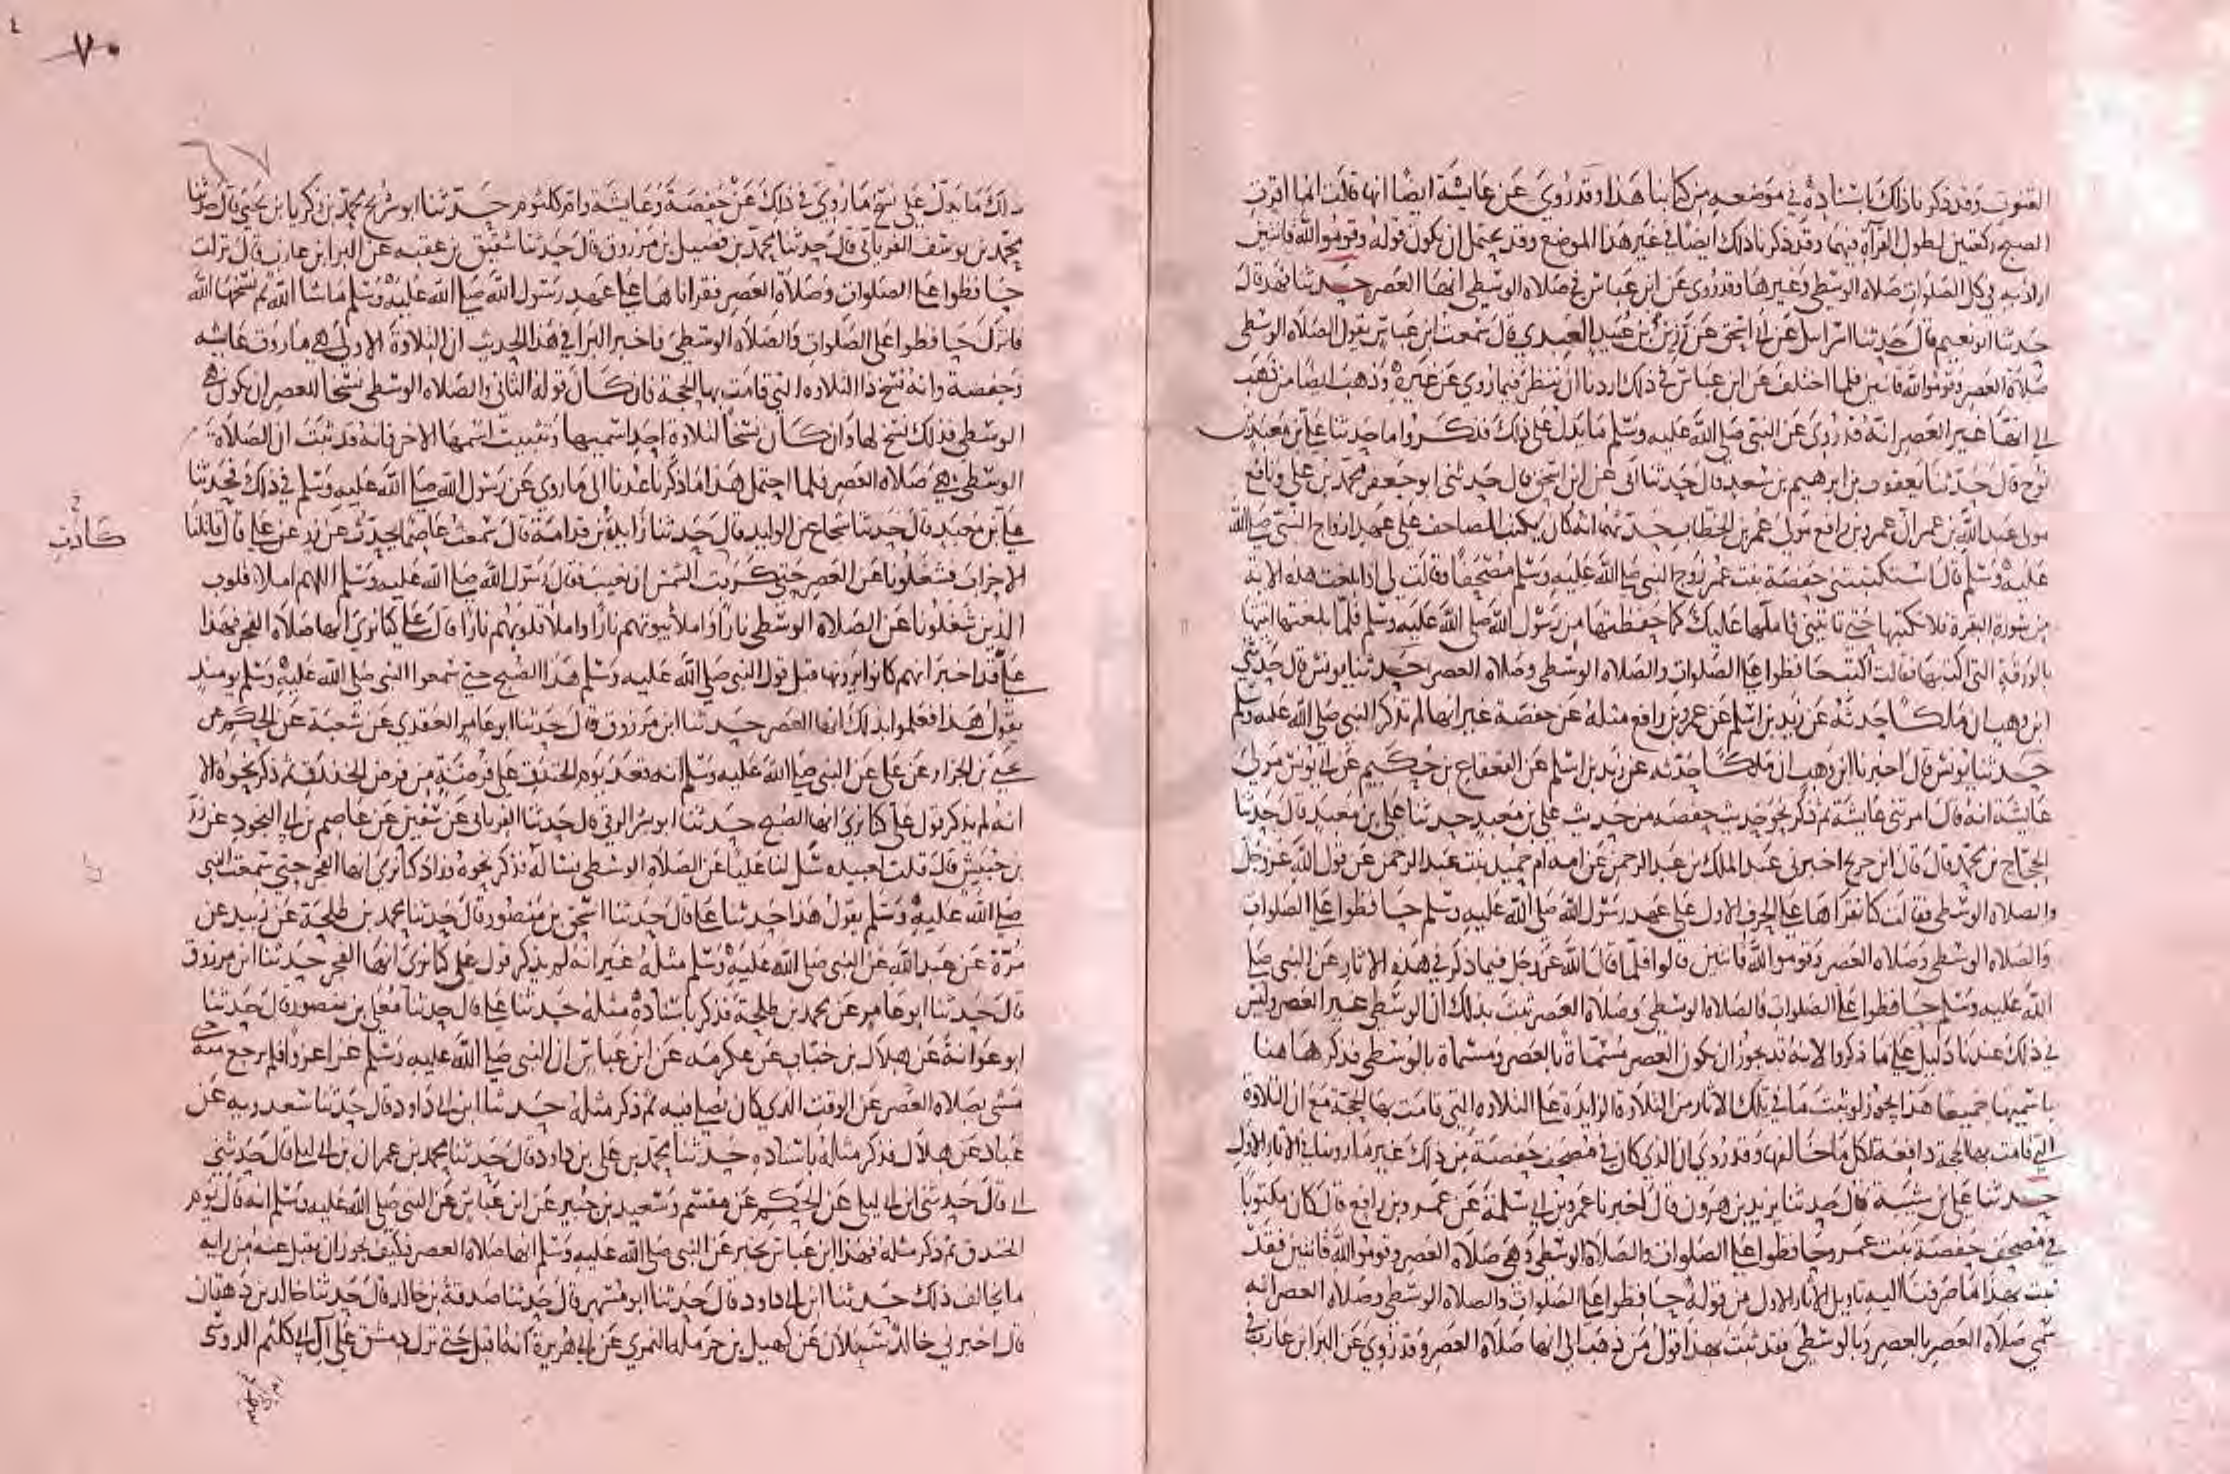 القنوت وقد ذكرنا ذلك باسناده في موضعه من كتابنا هذا وقد روي عن عايشة ايضا انها قالت انما اقرت
الصبح ركعتين لطول القراة فيهما وقد ذكرنا ذلك ايضا في غير هذا الموضع وقد يحتمل ان يكون قوله وقوموا لله قانتين
اراد به في كل الصلوات صلاة الوسطى وغيرها وقد روي عن ابن عباس في صلاة الوسطى انها العصر حدثنا فهد قال
حدثنا ابو نعيم قال حدثنا اسرائيل عن ابي اسحق عن رزين بن عبيد العبدي قال سمعت ابن عباس يقول الصلاة الوسطى
صلاة العصر وقوموا لله قانتين فلما اختلف عن ابن عباس في ذلك اردنا ان ننظر فيما روي عن غيره وذهب ايضا من ذهب
الى انها غير العصر انه قد روي عن النبي صلى الله عليه وسلم ما يدل على ذلك فذكروا ما حدثنا علي بن معبد بن
نوح قال حدثنا يعقوب بن ابرهيم بن سعد قال حدثنا ابي عن ابن اسحق قال حدثني ابو جعفر محمد بن علي ونافع
مولى عبد الله بن عمر ان عمرو بن رافع مولى عمر بن الخطاب حدثهما انه كان يكتب المصاحف على عهد ازواج النبي صلى الله
عليه وسلم قال استكتبتني حفصة بنت عمر زوج النبي صلى الله عليه وسلم مصحفا وقالت لي اذا بلغت هذه الاية
من سورة البقرة فلا تكتبها حتى تاتيني فاملها عليك كما حفظتها من رسول الله صلى الله عليه وسلم فلما بلغتها اتيتها
بالورقة التي اكتبها فقالت اكتب حافظوا على الصلوات والصلاة الوسطى وصلاة العصر حدثنا يونس قال حدثني
ابن وهب ان ملكا حدثه عن زيد بن اسلم عن عمرو بن رافع مثله عن حفصة غير انها لم تذكر النبي صلى الله عليه وسلم
حدثنا يونس قال اخبرنا ابن وهب ان ملكا حدثه عن زيد بن اسلم عن القعقاع بن حكيم عن ابي يونس مولى
عايشة انه قال امرتني عايشة ثم ذكر نحو حديث حفصة من حديث علي بن معبد حدثنا علي بن معبد قال حدثنا
الحجاج بن محمد قال قال ابن جريج اخبرني عبد الملك بن عبد الرحمن عن امه ام حميد بنت عبد الرحمن عن قول الله عز وجل
والصلاة الوسطى فقالت كنا نقراها على الحرف الاول على عهد رسول الله صلى الله عليه وسلم حافظوا على الصلوات
والصلاة الوسطى وصلاة العصر وقوموا لله قانتين قالوا فلما قال الله عز وجل فيما ذكر في هذه الاثار عن النبي صلى
الله عليه وسلم حافظوا على الصلوات والصلاة الوسطى وصلاة العصر ثبت بذلك ان الوسطى غير العصر وليس
في ذلك عندنا دليل على ما ذكروا لانه قد يجوز ان يكون العصر مسماة بالعصر ومسماة بالوسطى فذكرها هنا
باسميها جميعا هذا يجوز لو ثبت ما في تلك الاثار من التلاوة الزايدة على التلاوة التي قامت بها الحجة مع ان التلاوة
التي قامت بها الحجة دافعة لكل ما خالفها وقد روي ان الذي كان في مصحف حفصة من ذلك غير ما روينا في الاثار الاول
حدثنا علي بن شيبة قال حدثنا يزيد بن هرون قال اخبرنا محمد بن عمرو عن ابي سلمة عن عمرو بن رافع قال كان مكتوبا
في مصحف حفصة بنت عمر وحافظوا على الصلوات والصلاة الوسطى وهي صلاة العصر وقوموا لله قانتين فقد
ثبت بهذا ما صرفنا اليه تاويل الاثار الاول من قوله حافظوا على الصلوات والصلاة الوسطى وصلاة العصر انه
سمي صلاة العصر بالعصر وبالوسطى فقد ثبت بهذا قول من ذهب الى انها صلاة العصر وقد روي عن البرا بن عازب في
٧٠
ذلك ما يدل على نسخ ما روي في ذلك عن حفصة وعايشة وام كلثوم حدثنا ابو شريح محمد بن زكريا بن يحيى قال حدثنا
محمد بن يوسف الفريابي قال حدثنا محمد بن فضيل بن مرزوق قال حدثنا شقيق بن عقبه عن البرا بن عازب قال نزلت
حافظوا على الصلوات وصلاة العصر فقراناها على عهد رسول الله صلى الله عليه وسلم ما شا الله ثم نسخها الله
فانزل حافظوا على الصلوات والصلاة الوسطى فاخبر البرا في هذا الحديث ان التلاوة الاولى هي ما روت عايشه
وحفصة وانه نسخ ذا التلاوه التي قامت بها الحجة فان كان قوله الثاني والصلاه الوسطى نسخا للعصر ان يكون هي
الوسطى فذلك نسخ لها وان كان نسخا لتلاوة احد اسميها وتثبيت اسمها الاخر فانه قد ثبت ان الصلاة
الوسطى هي صلاة العصر فلما احتمل هذا ما ذكرنا عدنا الى ما روي عن رسول الله صلى الله عليه وسلم في ذلك فحدثنا
علي بن معبد قال حدثنا شجاع بن الوليد قال حدثنا زايدة بن قدامة قال سمعت عاصما يحدث عن زر عن علي قال قاتلنا
كادت
الاحزاب فشغلونا عن العصر حتى كربت الشمس ان تغيب فقال رسول الله صلى الله عليه وسلم اللهم املا قلوب
الذين شغلونا عن الصلاة الوسطى نارا واملا بيوتهم نارا واملا قلوبهم نارا قال علي كنا نرى انها صلاة الفجر فهذا
علي قد اخبر انهم كانوا يرونها قبل قول النبي صلى الله عليه وسلم هذا الصبح حتى سمعوا النبي صلى الله عليه وسلم يومئذ
يقول هذا فعلموا بذلك انها العصر حدثنا ابن مرزوق قال حدثنا ابو عامر العقدي عن شعبة عن الحكم عن
يحيى بن الجزار عن علي عن النبي صلى الله عليه وسلم انه قعد يوم الخندق على فرضة من فرض الخندق ثم ذكر نحوه الا
انه لم يذكر قول علي كنا نرى انها الصبح حدثنا ابو بشر الرقي قال حدثنا الفريابي عن سفين عن عاصم بن ابي النجود عن زر
بن حبيش قال قلت لعبيده سل لنا عليا عن الصلاة الوسطى فساله فذكر نحوه وزاد كنا نرى انها الفجر حتى سمعت النبي
صلى الله عليه وسلم يقول هذا حدثنا علي قال حدثنا اسحق بن منصور قال حدثنا محمد بن طلحة عن زبيد عن
مرة عن عبد الله عن النبي صلى الله عليه وسلم مثله غير انه لم يذكر قول علي كنا نرى انها الفجر حدثنا ابن مرزوق
قال حدثنا ابو عامر عن محمد بن طلحة فذكر باسناده مثله حدثنا علي قال حدثنا معلى بن منصور قال حدثنا
ابو عوانة عن هلال بن خباب عن عكرمه عن ابن عباس ان النبي صلى الله عليه وسلم غزا غزوا فلم يرجع منه حتى
مسى بصلاه العصر عن الوقت الذي كان يصلي فيه ثم ذكر مثله حدثنا ابن ابي داود قال حدثنا سعدويه عن
عباد عن هلال فذكر مثله باسناده حدثنا محمد بن علي بن داود قال حدثنا محمد بن عمران بن ابي ليلى قال حدثني
ابي قال حدثني ابن ابي ليلى عن الحكم عن مقسم وسعيد بن جبير عن ابن عباس عن النبي صلى الله عليه وسلم انه قال يوم
الخندق ثم ذكر مثله فهذا ابن عباس يخبر عن النبي صلى الله عليه وسلم انها صلاة العصر فكيف يجوز ان يقبل عنه من رايه
ما يخالف ذلك حدثنا ابن ابي داود قال حدثنا ابو مسهر قال حدثنا صدقة بن خالد قال حدثنا خالد بن دهقان
قال اخبرني خالد سبلان عن كهيل بن حرملة النمري عن ابي هريرة انه اقبل حتى نزل دمشق على آل ابي كلثم الدوسي